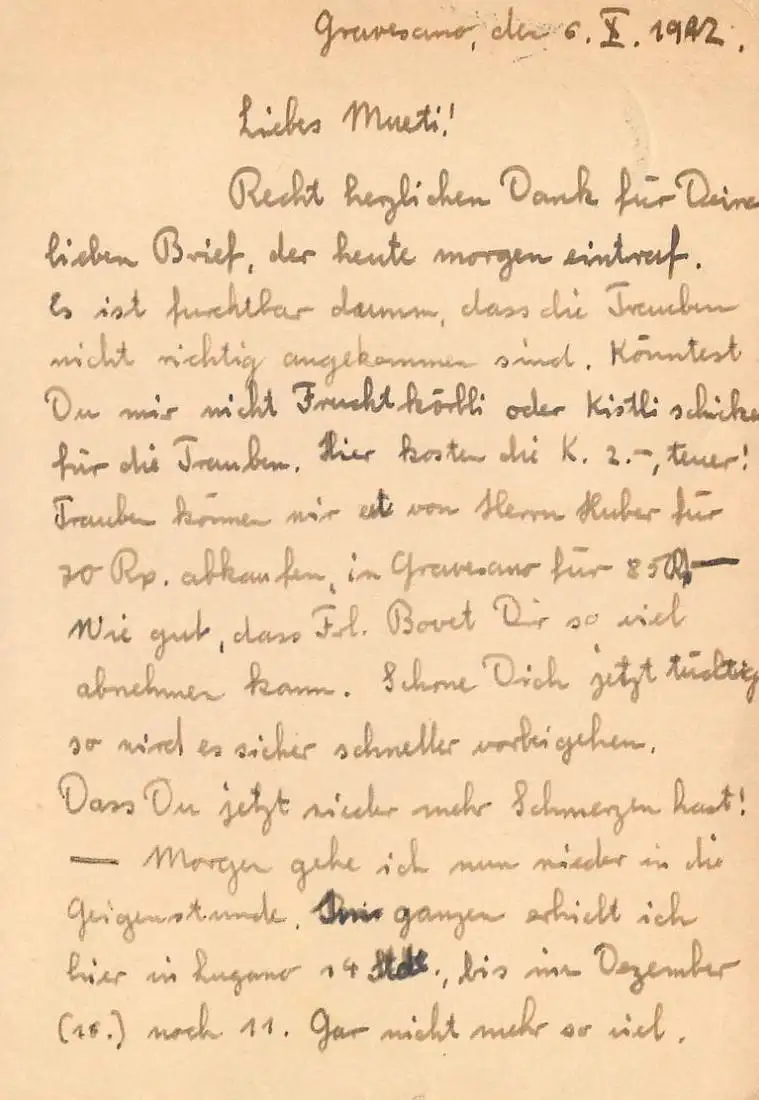 Gravesano, den 6. X. 1942.
Liebes Mueti!
Recht herzlichen Dank für Deine
lieben Brief, der heute morgen eintraf.
Es ist furchtbar dumm, dass die Trauben
nicht richtig angekommen sind. Könntest
Du mir nicht Fruchtkörbli oder Kistli schicke
für die Trauben. Hier kosten die K. 2.-, teuer!
Trauben können wir von Herrn Huber für
70 Rp. abkaufen, in Gravesano für 85 Rp —
Wie gut, dass Frl. Bovet Dir so viel
abnehmen kann. Schone Dich jetzt tüchtig
so wird es sicher schneller vorbeigehen.
Dass Du jetzt wieder mehr Schmerzen hast!
— Morgen gehe ich nun wieder in die
Geigenstunde. ganzen erhielt ich
hier in Lugano 14 Std., bis im Dezember
(16.) noch 11. Gar nicht mehr so viel.